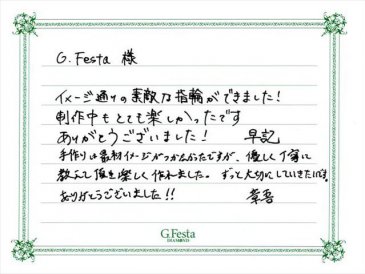 G.Festa 様
イメージ通りの素敵な指輪ができました!
制作中もとても楽しかったです
ありがとうございました! 早記
手作りは最初イメージがつかなかったですが、優しく丁寧に
教えて頂き楽しく作れました。ずっと大切にしていきたいです。
ありがとうございました!! 章吾
G.Festa
DIAMOND